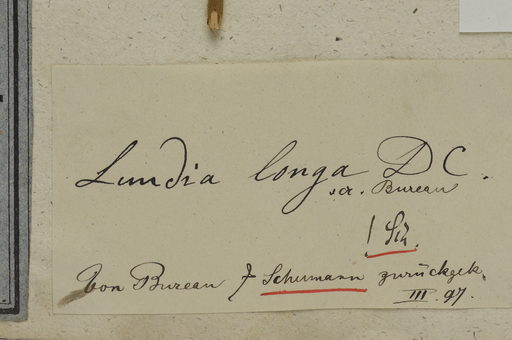 Lundia longa DC.
scr. Bureau
! Sch.
Von Bureau f Schumann zurückgek.
III. 97.